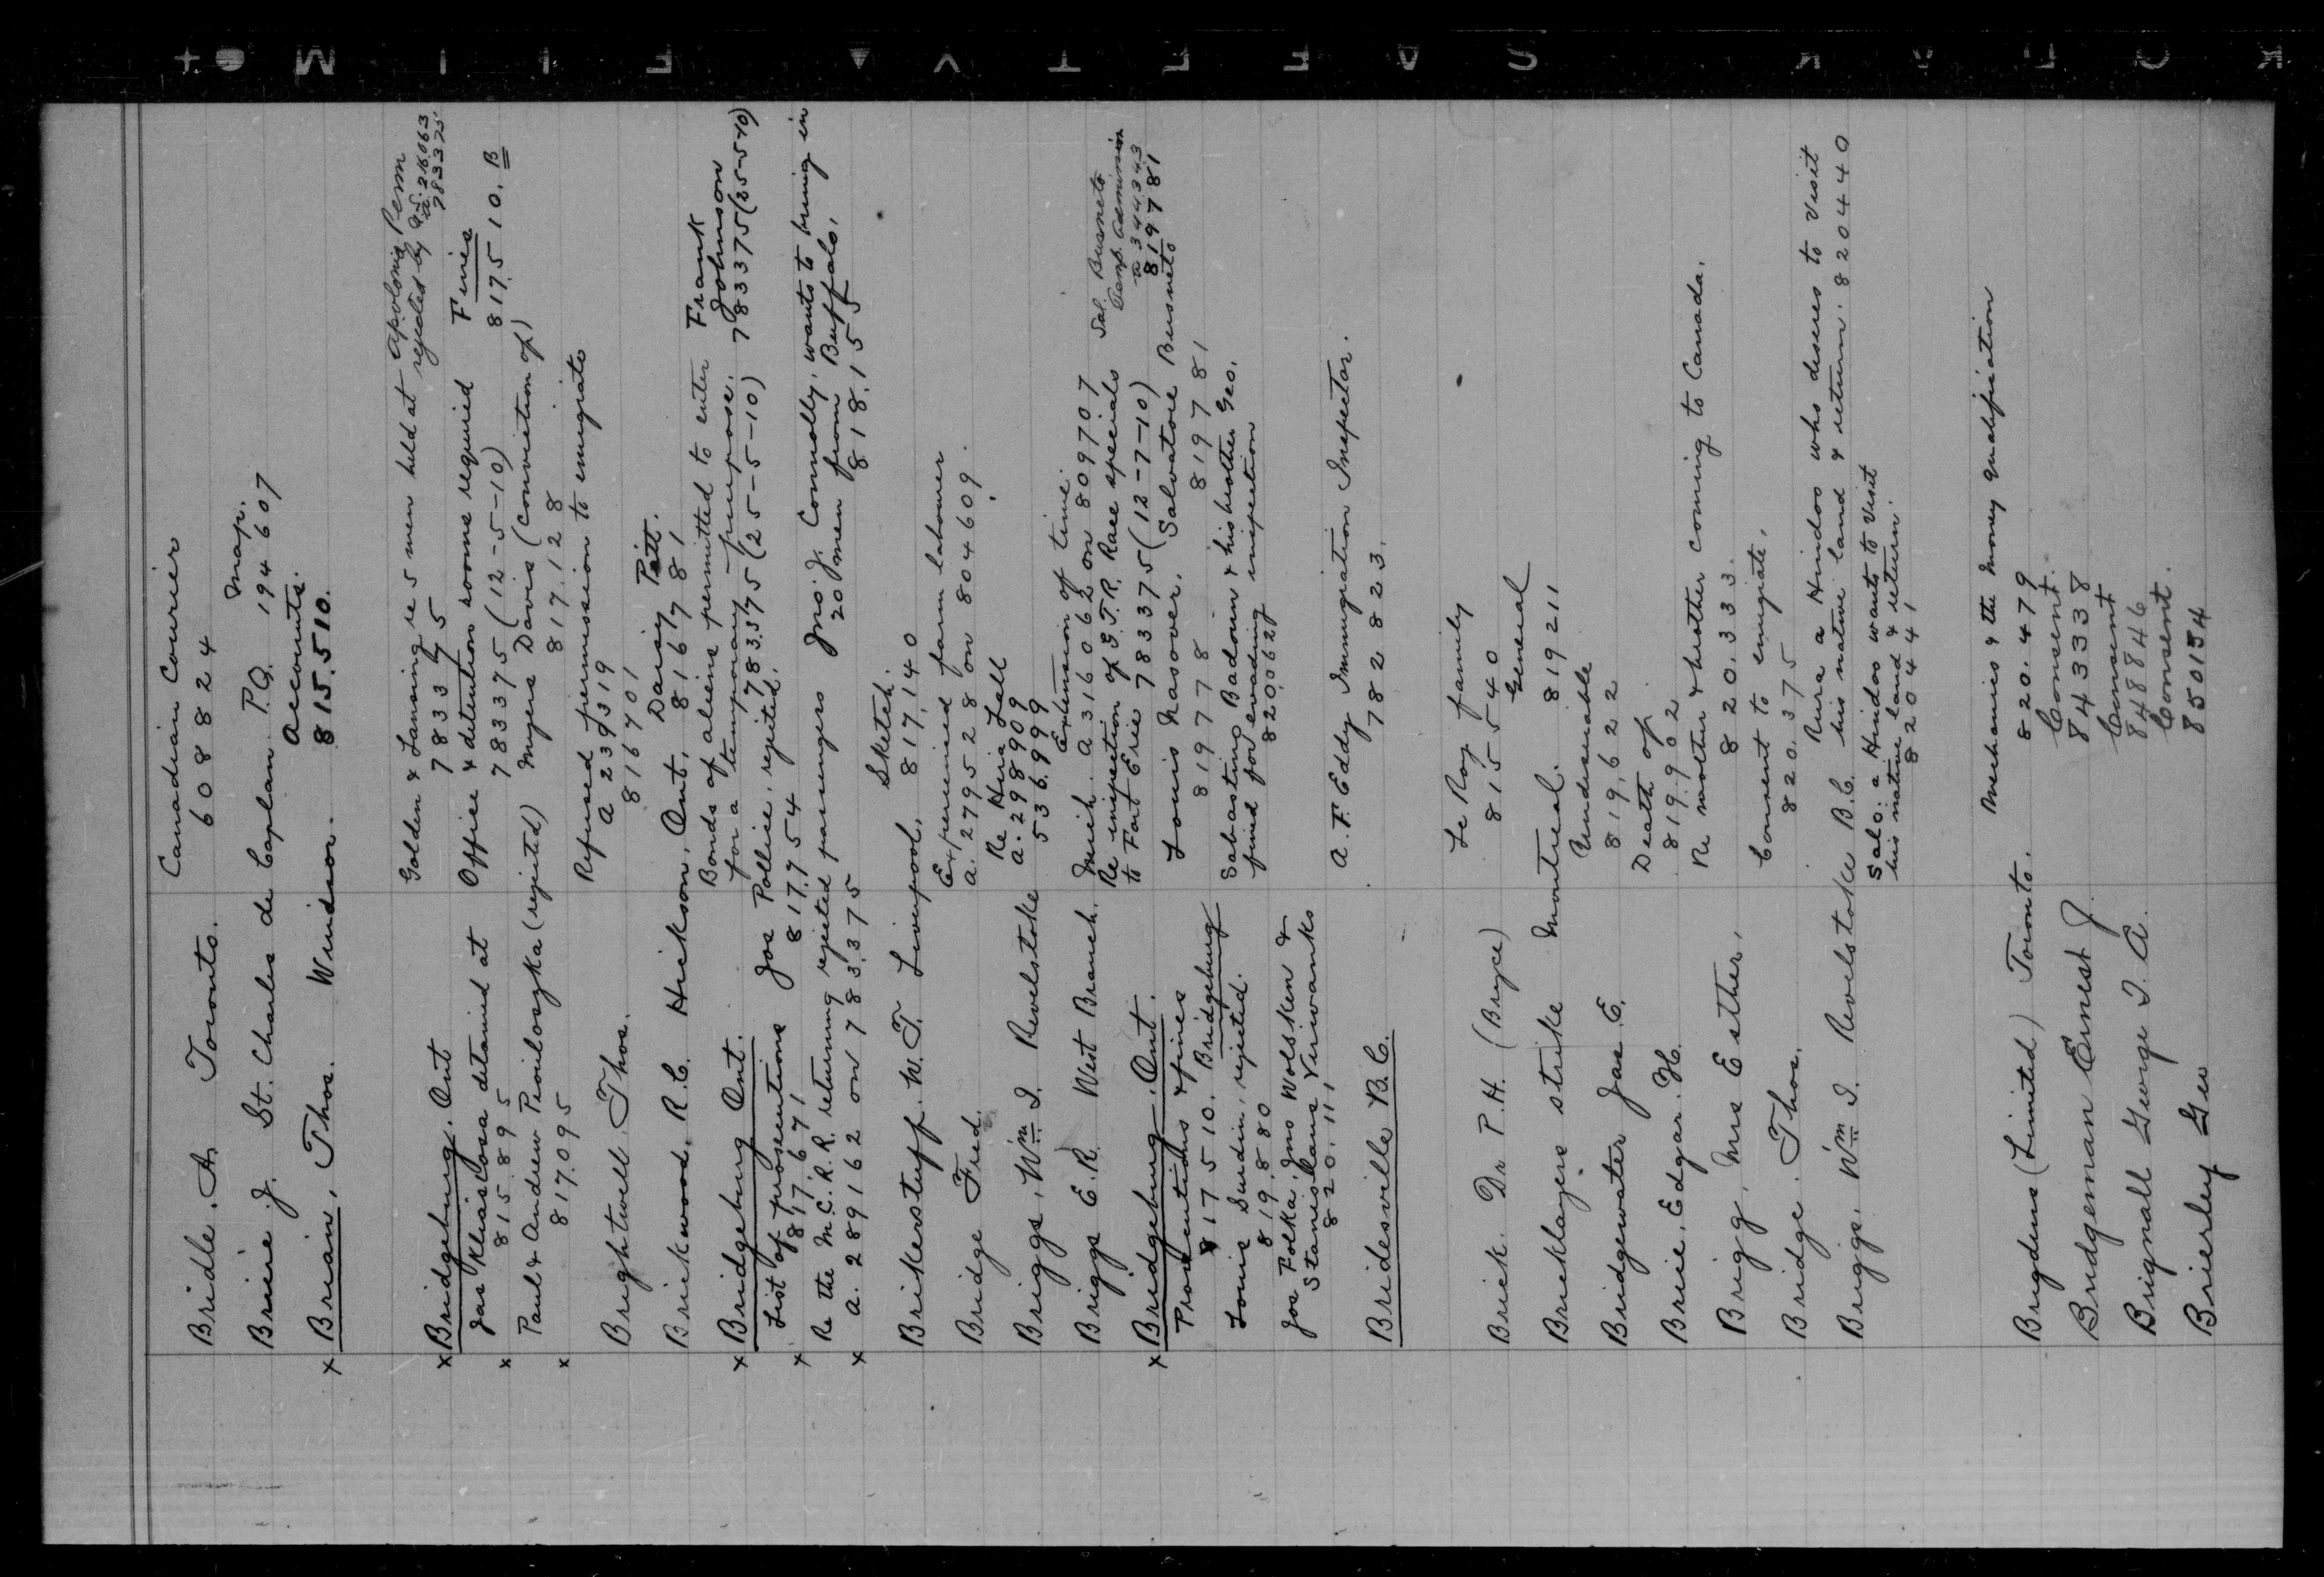 Bridle. A Toronto. Canadian Courier
608824
Briere J. St. Charles de Caplan P.Q. Map. 194607
x Brian, Thos. Windsor. Accounts. 815.510.
x Bridgeburg. Ont Golden & Lansing re 5 men held at
783375
Apolonia
rejected by
783375
Jas Kleisdora detained at
815.895
Office & detention rooms required
783375 (12-5-10)
Fines
817.510. B
x Paul & Andrew Pioiloszka (rejected)
817.095
x Myers Davis (conviction of)
817.128
Brightwell. Thos. Refused permission to emigrate
A 239319
816701
Brickwood. R.C. Hickson, Ont, Daisy Pett.
816781
x Bridgeburg Ont. Bonds of aliens permitted to enter
for a temporary purpose.
783375 (25-5-10)
Frank Johnson
783375 (25-5-10)
List of prosecutions
817.671
Joe Pollice, rejected.
817.754
x Re the M.C.R.R. returning rejected passengers
x A. 289162 on 783.375
Jno. J. Connolly, wants to bring in
20 men from Buffalo,
818.155
Brikerstuff. W.T. Liverpool, Sketch.
817,140
Bridge Fred. Experienced farm labourer
A. 279528 on 804609.
Briggs, Wm. I. Revelstoke Re Hira Lall
A. 298909
536.999
Briggs E.R. West Branch. Extension of time
Mich. A 316062 on 809707
x Bridgeburg, Ont. Re inspection of G.T.R. Race specials
to Fort Erie 783375 (12-7-10)
Sal. Busneto
Temp. admission
A 344343
819781
Prosecutions & fines
817510. Bridgeburg
Louis Nasover.
819778
Salvatore Busneto
819781
Louis Surdin, rejected.
819.880
Sabasting Badown & his brother Geo.
fined for evading inspection
820062
Joe Folka, Jno Wolsken &
Stanislaus Veriwanks
820.11,
Bridesville B.C. A.F. Eddy Immigration Inspector.
782823.
Brick. Dr P.H. (Bryce) Le Roy family
815540
Bricklayers strike Montreal. General
819211
Bridgewater Jas E. Undesirable
819,622
Brice. Edgar. H. Death of
819.902
Brigg, Mrs Esther, Re mother & brother coming to Canada.
820.333.
Bridge. Thos. Consent to emigrate,
820.375
Briggs, Wm. I. Revelstoke B.C. Rura a Hindoo who desires to visit
his native land & return. 820440
Salo: a Hindoo wants to visit
his native land & return.
820441
Brigdens (Limited) Toronto. Mechanics & the money qualification
820.479
Bridgeman Ernest J. Consent.
843338
Brignall George I. A. Consent
848846
Brierley Geo Consent.
850154